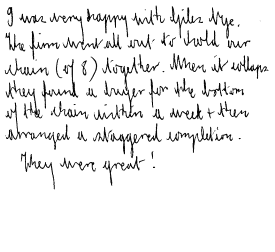 I was very happy with Giles Nye.
The firm went all out to hold our
chain (of 8) together. When it collaps
they found a buyer for the bottom
of the chain within a week + then
arranged a staggered completion.
They were great!